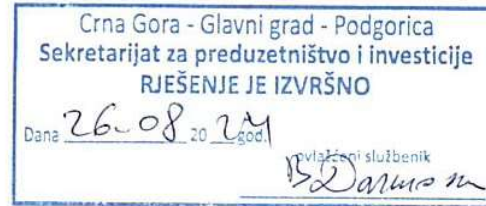 Crna Gora - Glavni grad - Podgorica
Sekretarijat za preduzetništvo i investicije
RJEŠENJE JE IZVRŠNO
Dana 26-08 20 24 god.
ovlašćeni službenik